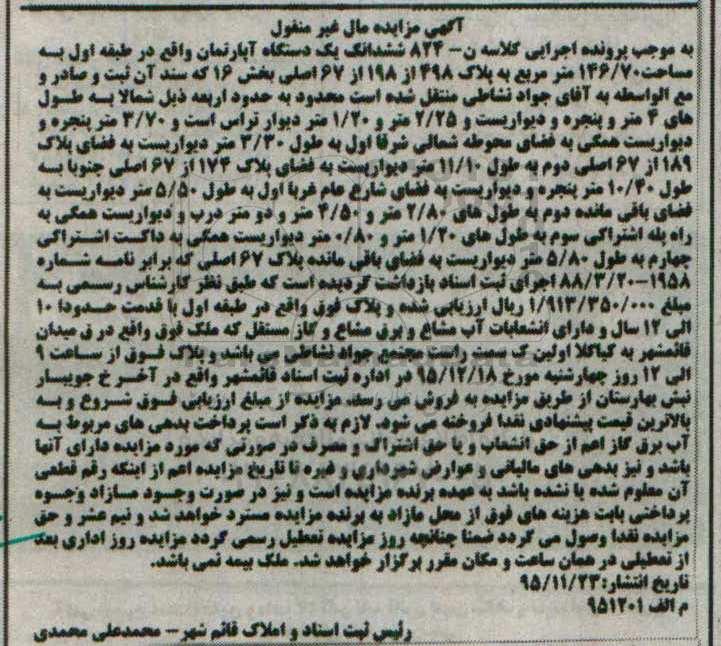 آگهی مزایده مال غیر منقول
به موجب پرونده اجرایی کلاسه ن– ۸۲۴ ششدانگ یک دستگاه آپارتمان واقع در طبقه اول به
مساحت۱۴۶/۷۰ متر مربع به پلاک ۴۹۸ از ۱۹۸ از ۶۷ اصلی بخش ۱۶ که سند آن ثبت و صادر و
مع الواسطه به آقای جواد نشاطی منتقل شده است محدود به حدود اربعه ذیل شمالا به طول
های ۴ متر و پنجره و دیواریست و ۲/۲۵ متر و ۱/۲۰ متر دیوار تراس است و ۳/۷۰ متر پنجره و
دیواریست همگی به فضای محوطه شمالی شرقا اول به طول ۳/۳۰ متر دیواریست به فضای پلاک
۱۸۹ از ۶۷ اصلی دوم به طول ۱۱/۱۰ متر دیواریست به فضای پلاک ۱۷۴ از ۶۷ اصلی جنوبا به
طول ۱۰/۴۰ متر پنجره و دیواریست به فضای شارع عام غربا اول به طول ۵/۵۰ متر دیواریست به
فضای باقی مانده دوم به طول های ۲/۸۰ متر و ۴/۵۰ متر و دو متر درب و دیواریست همگی به
راه پله اشتراکی سوم به طول های ۱/۲۰ متر و ۰/۸۰ متر دیواریست همگی به داکت اشتراکی
چهارم به طول ۵/۸۰ متر دیواریست به فضای باقی مانده پلاک ۶۷ اصلی که برابر نامه شماره
۱۹۵۸–۸۸/۳/۲۰ اجرای ثبت اسناد بازداشت گردیده است که طبق نظر کارشناس رسمی به
مبلغ ۱/۹۱۳/۳۵۰/۰۰۰ ریال ارزیابی شده و پلاک فوق واقع در طبقه اول با قدمت حدودا ۱۰
الی ۱۲ سال و دارای انشعابات آب مشاع و برق مشاع و گاز مستقل که ملک فوق واقع در ق میدان
قائمشهر به کیاکلا اولین ک سمت راست مجتمع جواد نشاطی می باشد و پلاک فوق از ساعت ۹
الی ۱۲ روز چهارشنبه مورخ ۹۵/۱۲/۱۸ در اداره ثبت اسناد قائمشهر واقع در آخر خ جویبار
نبش بهارستان از طریق مزایده به فروش می رسد. مزایده از مبلغ ارزیابی فوق شروع و به
بالاترین قیمت پیشنهادی نقدا فروخته می شود. لازم به ذکر است پرداخت بدهی های مربوط به
آب برق گاز اعم از حق انشعاب و یا حق اشتراک و مصرف در صورتی که مورد مزایده دارای آنها
باشد و نیز بدهی های مالیاتی و عوارض شهرداری و غیره تا تاریخ مزایده اعم از اینکه رقم قطعی
آن معلوم شده یا نشده باشد به عهده برنده مزایده است و نیز در صورت وجود مازاد وجوه
پرداختی بابت هزینه های فوق از محل مازاد به برنده مزایده مسترد خواهد شد و نیم عشر و حق
مزایده نقدا وصول می گردد ضمنا چنانچه روز مزایده تعطیل رسمی گردد مزایده روز اداری بعد
از تعطیلی در همان ساعت و مکان مقرر برگزار خواهد شد. ملک بیمه نمی باشد.
تاریخ انتشار:۹۵/۱۱/۲۳
م الف ۹۵۱۲۰۱
رئیس ثبت اسناد و املاک قائم شهر– محمدعلی محمدی